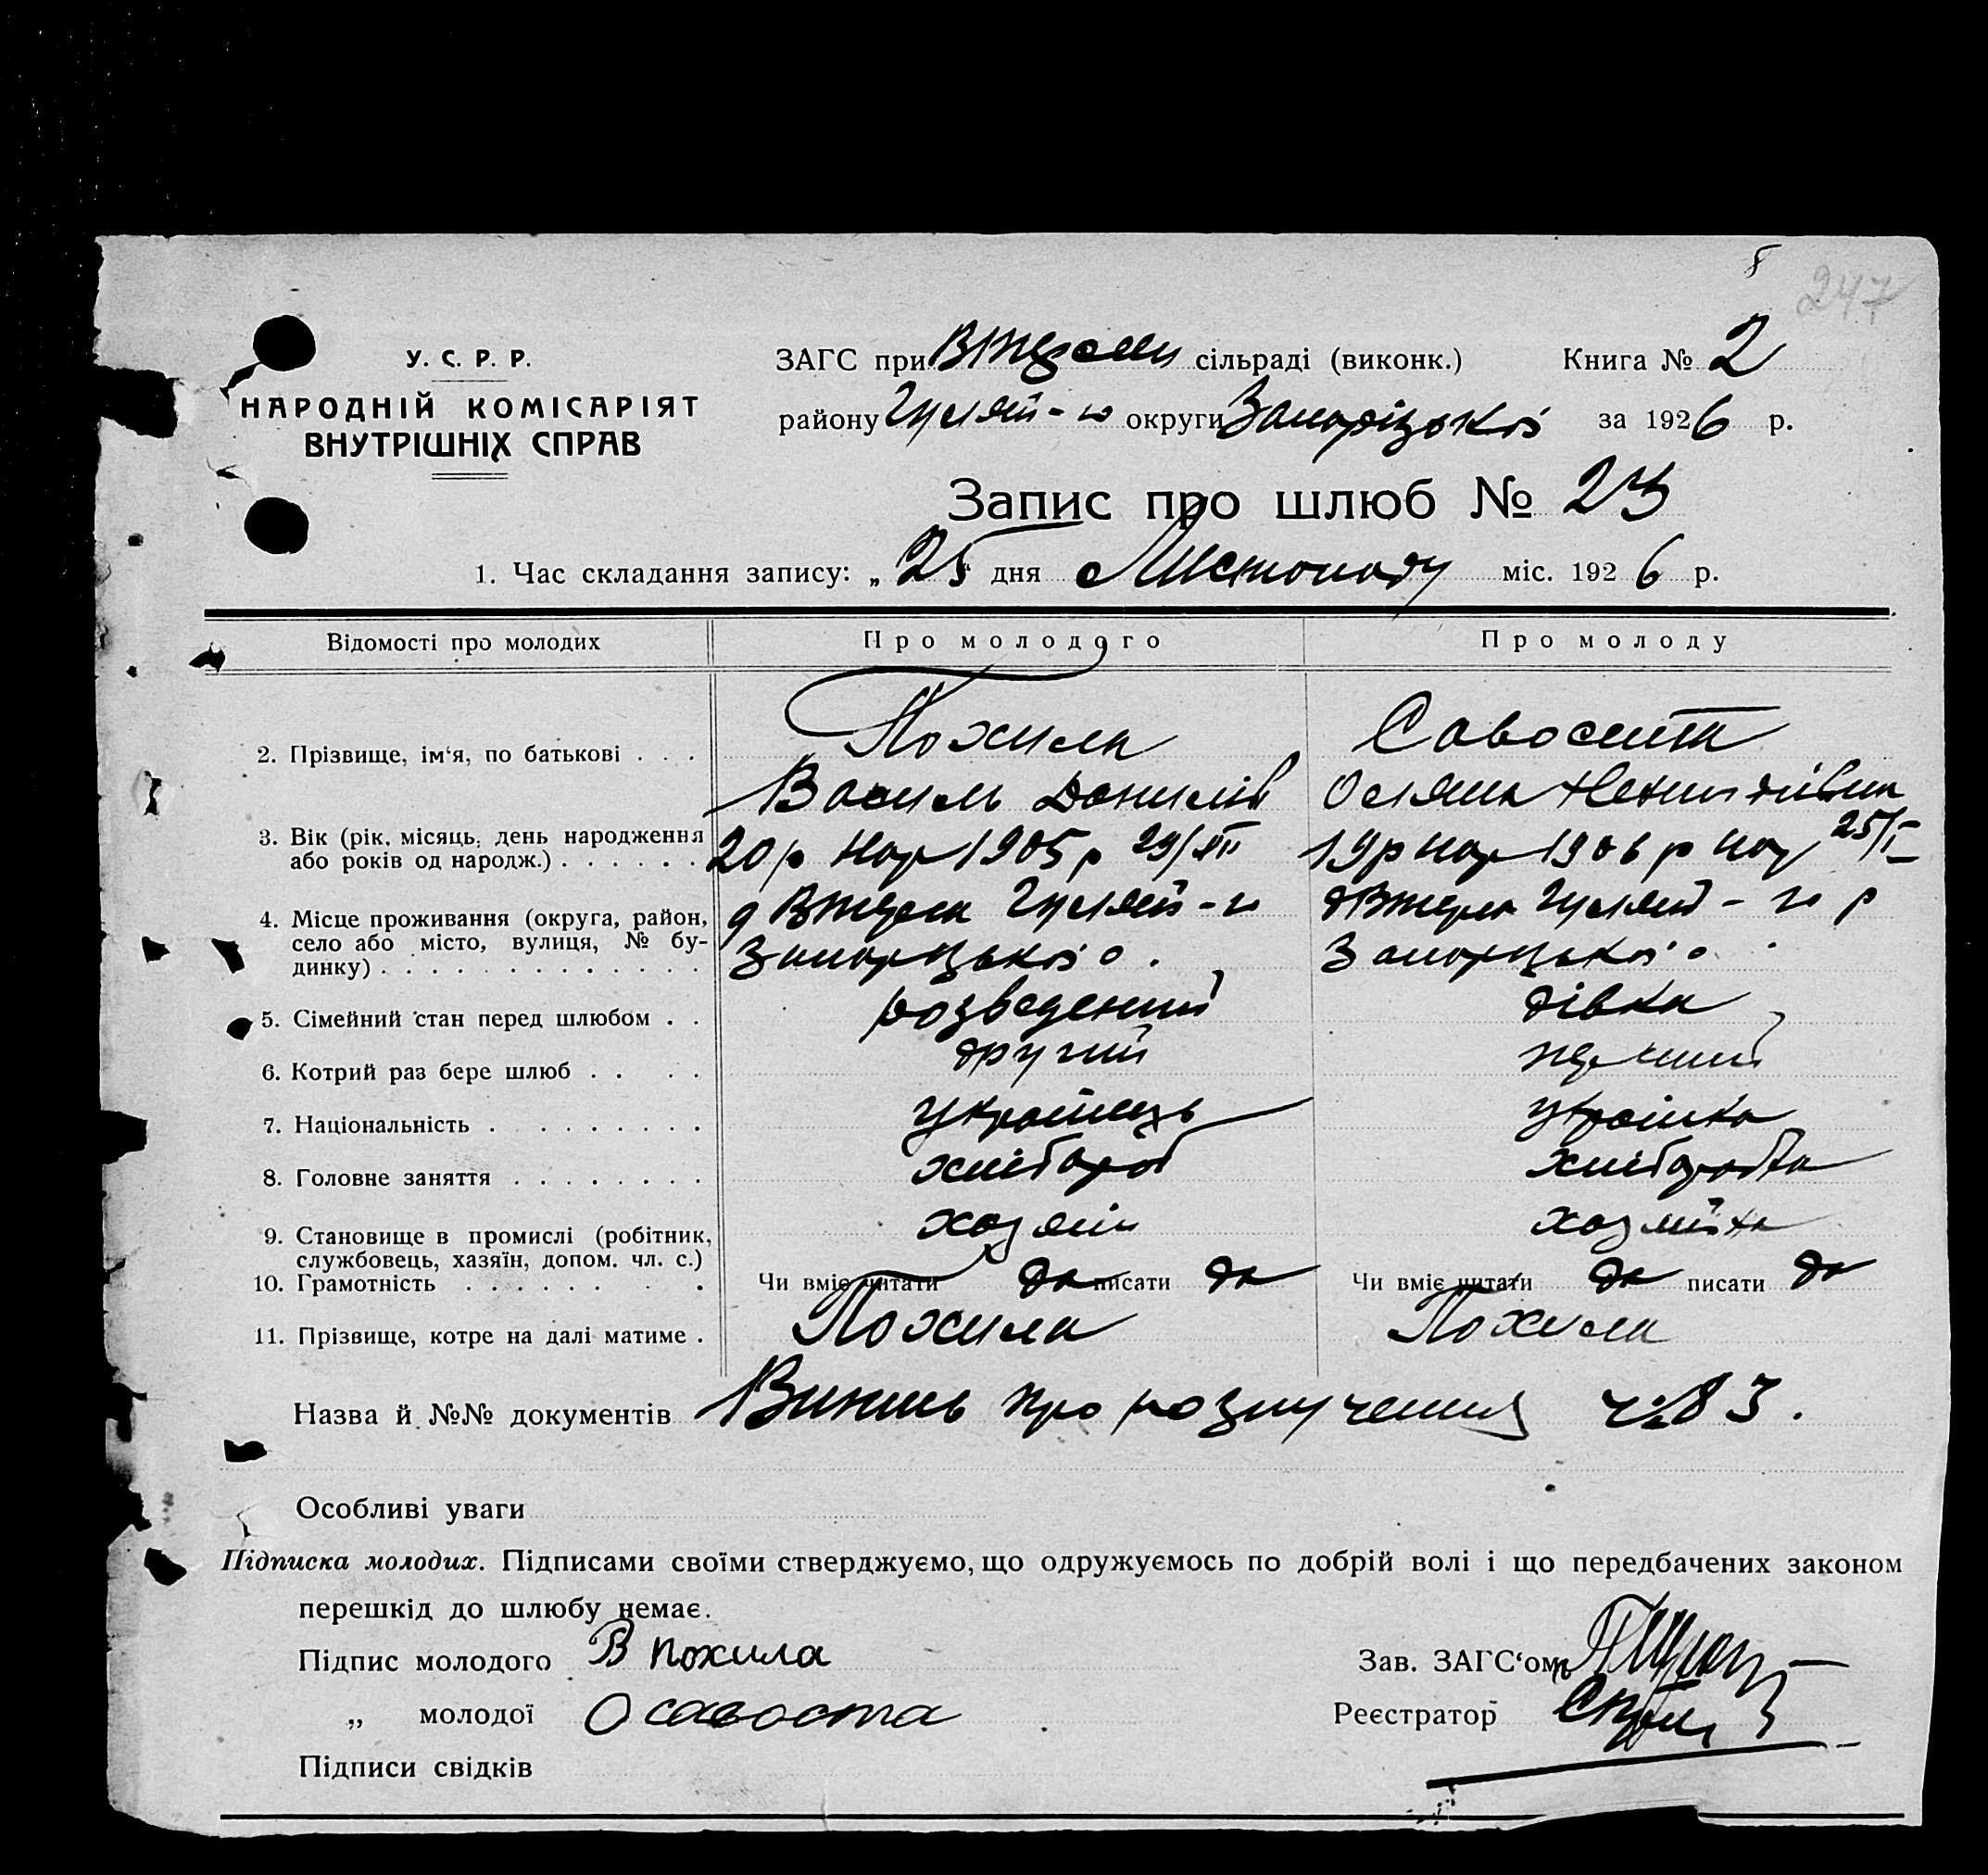 8
247
У. С. Р. Р.
НАРОДНІЙ КОМІСАРІЯТ
ВНУТРІШНІХ СПРАВ
ЗАГС при сільраді (виконк.) Книга № 2
району Гуляй-го округи Запорізької за 1926 р.
Запис про шлюб № 23
1. Час складання запису: „25" дня Листопаду міс. 1926 р.
Відомості про молодих Про молодого Про молоду
2. Прізвище, ім'я, по батькові . . . Похила Савоста
Василь Данилів Оляна
3. Вік (рік, місяць, день народження
або років од народж.) . . . . . . 20 р нар 1905 р 29/XII 19 р нар 1906 р нар 25/I
4. Місце проживання (округа, район,
село або місто, вулиця, № бу-
динку) . . . . . . . . . . . . .
Гуляй-го Гуляй-го р
Запорізької о. Запорізької о.
5. Сімейний стан перед шлюбом . . розведений дівка
6. Котрий раз бере шлюб . . . . другий перший
7. Національність . . . . . . . . . українець українка
8. Головне заняття . . . . . . . . хлібороб хліборобка
9. Становище в промислі (робітник,
службовець, хазяїн, допом. чл. с.) хозяїн хозяйка
10. Грамотність . . . . . . . . Чи вміє читати да писати да Чи вміє читати да писати да
11. Прізвище, котре на далі матиме . Похила Похила
Назва й №№ документів Випись про розлучення ч. 83.
Особливі уваги
Підписка молодих. Підписами своїми стверджуємо, що одружуємось по добрій волі і що передбачених законом
перешкід до шлюбу немає.
Підпис молодого В Похила Зав. ЗАГС'ом
„ молодої О савоста Реєстратор
Підписи свідків